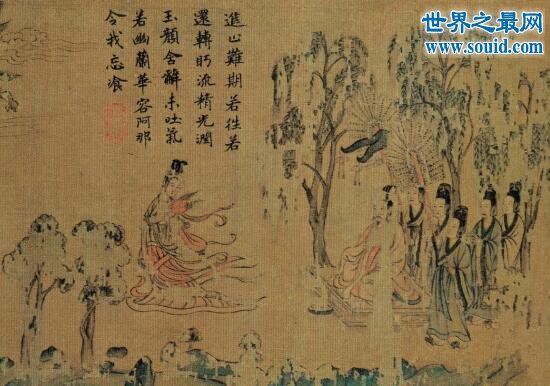 世界之最网
www.souid.com
進止難期若往若
還轉眄流精光潤
玉顏含辭未吐氣
若幽蘭華容阿那
令我忘飡